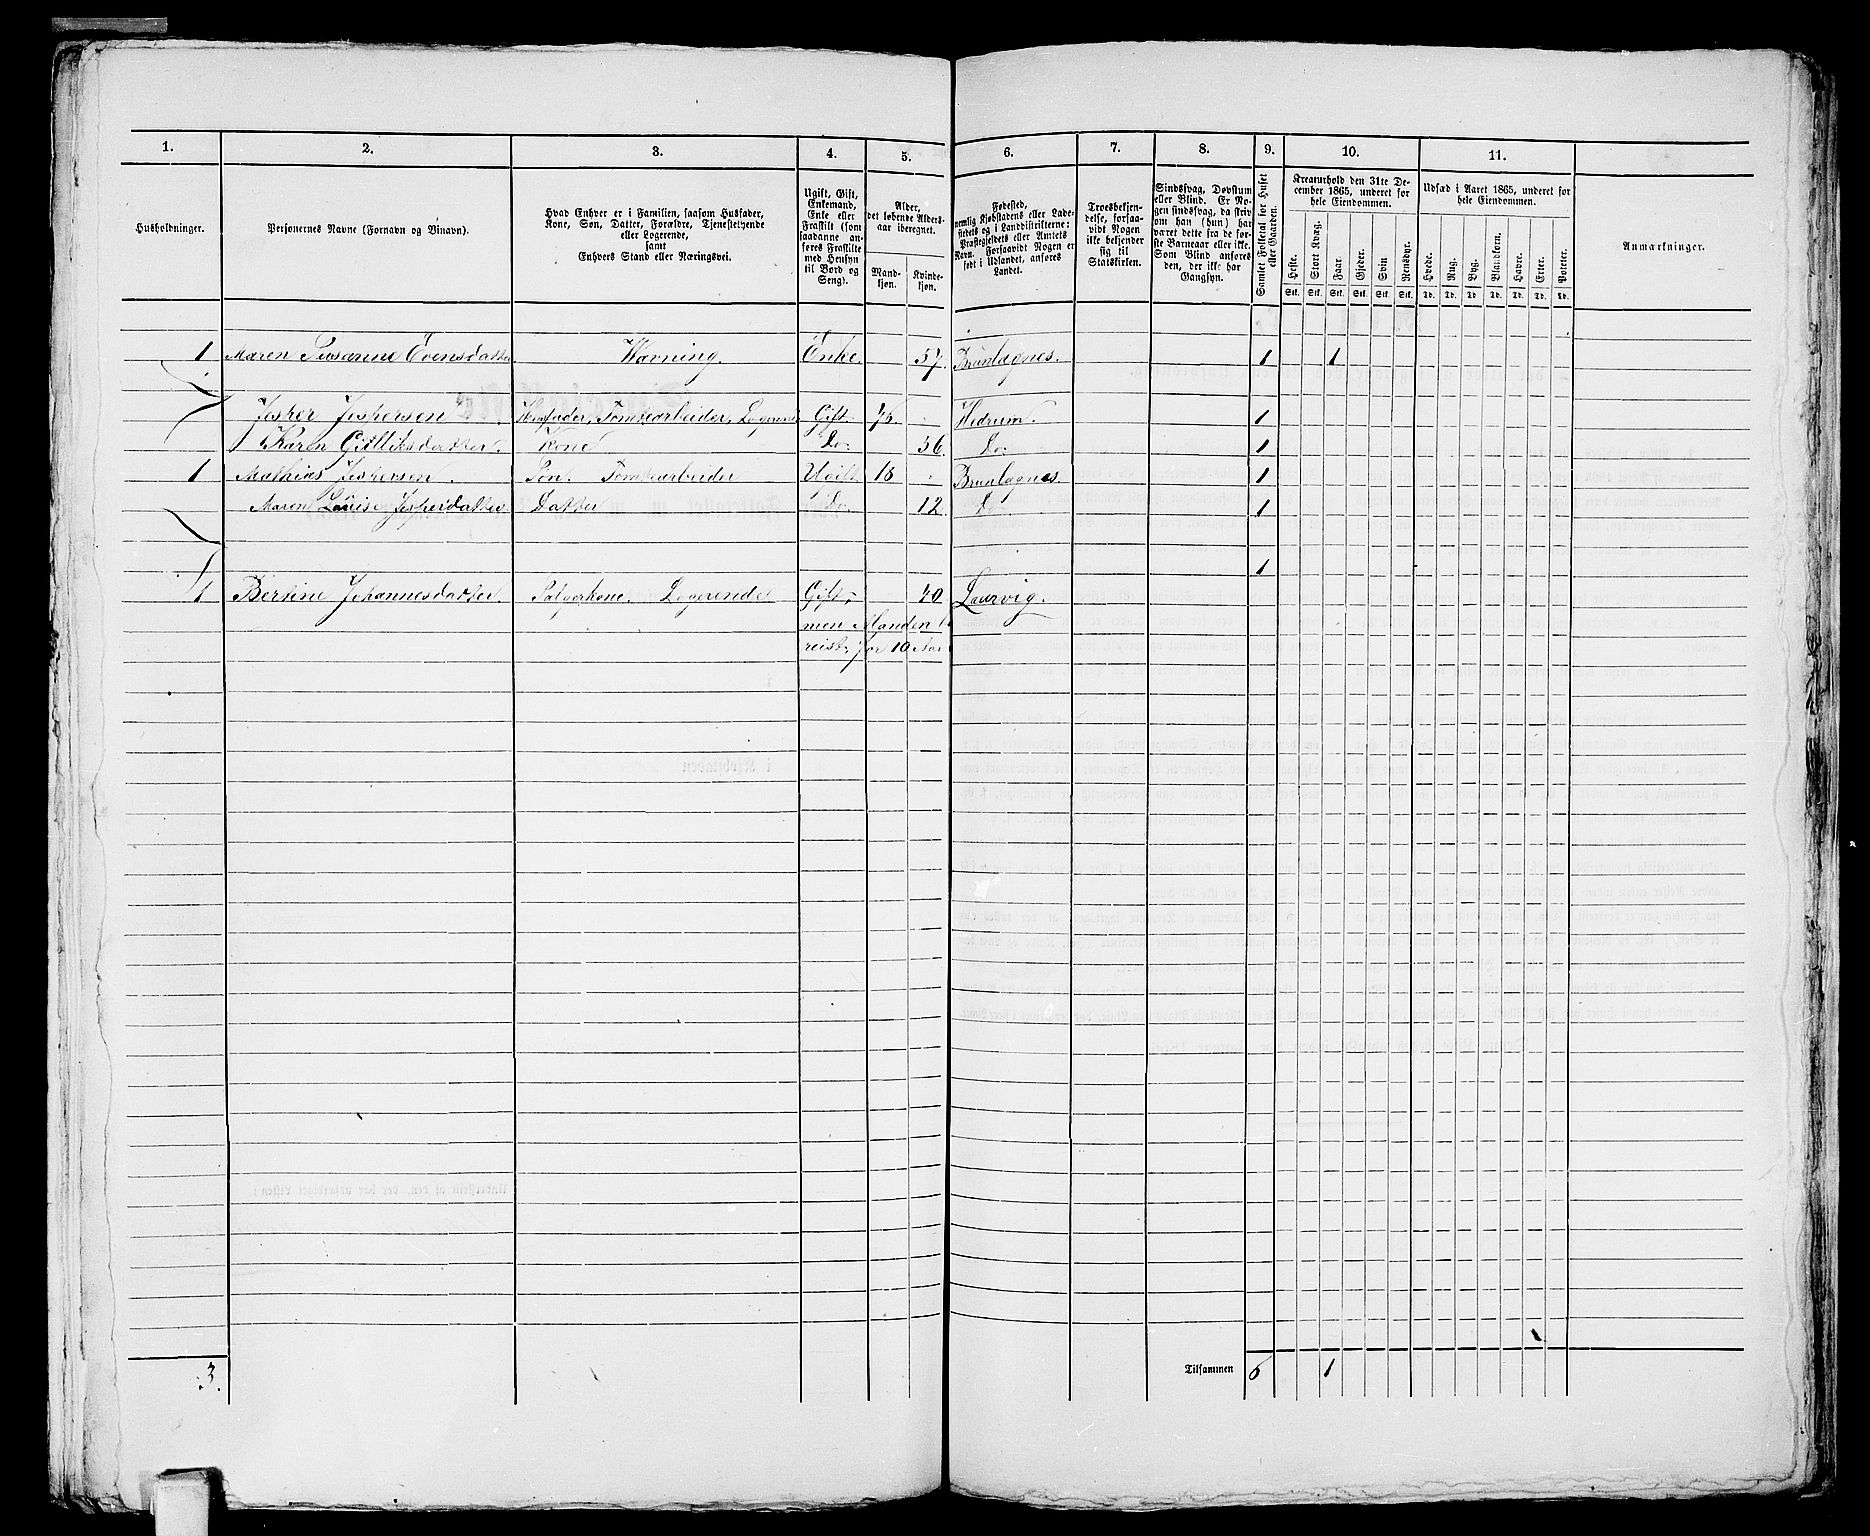 1. 2. 3. 4. 5. 6. 7. 8. 9. 10. 11.
Husholdninger.
Personernes Navne (Fornavn og Tilnavn).
Hvad Enhver er i Familien, saasom Husfader,
Kone, Søn, Datter, Forældre, Tjenestetyende
eller Logerende,
samt
Enhvers Stand eller Næringsvei.
Ugift, Gift,
Enkemand,
Enke eller
Fraskilt (som
saadanne an-
føres Fraskilte
med Hensyn
til Bord og
Seng).
Alder,
det løbende Alders-
aar iberegnet.
Mand-
kjøn.
Kvinde-
kjøn.
Fødested,
nemlig Kjøbstadens eller Lade-
stedets og i Landdistrikterne:
Præstegjeldets eller Amtets
Navn. Forsaavidt Nogen er
født i Udlandet, anføres
Landet.
Troesbekjen-
delse, forsaa-
vidt Nogen
ikke bekjender
sig til
Statskirken.
Sindssvag, Døvstum
eller Blind. Er No-
gen sindssvag, da skriv
om han (hun) har
været dette fra de før-
ste Barneaar eller ikke.
Som Blind anføres
den, der ikke har
Gangsyn.
Samlet Folketal for Huset
eller Gaarden.
Kreaturhold den 31te De-
cember 1865, underet for
hele Eiendommen.
Heste. Stort Kvæg. Faar. Gjeder. Svin. Rensdyr.
Stk. Stk. Stk. Stk. Stk. Stk.
Udsæd i Aaret 1865, underet for
hele Eiendommen.
Hvede. Rug. Byg. Blandkorn. Havre. Erter. Poteter.
Td. Td. Td. Td. Td. Td. Td.
Anmærkninger.
1 Maren Susanne Evensdatter Enke. 57. Brunlagnes. 1 1
Jesper Jespersen Husfader, Tomtearbeider, Logerende Gift. 45. Hedrum. 1
Karen Gulliksdatter. Kone Do. 56. Do. 1
1 Mathias Jespersen. Søn. Tomtearbeider Ugift 18 Brunlagnes. 1
Maren Louise Jespersdatter Datter Do. 12. Do. 1
1
1 Bertine Johannesdatter. Logerende Gift, 40. Laurvig.
men Manden
reist for 10 Aar
3. Tilsammen 6 1